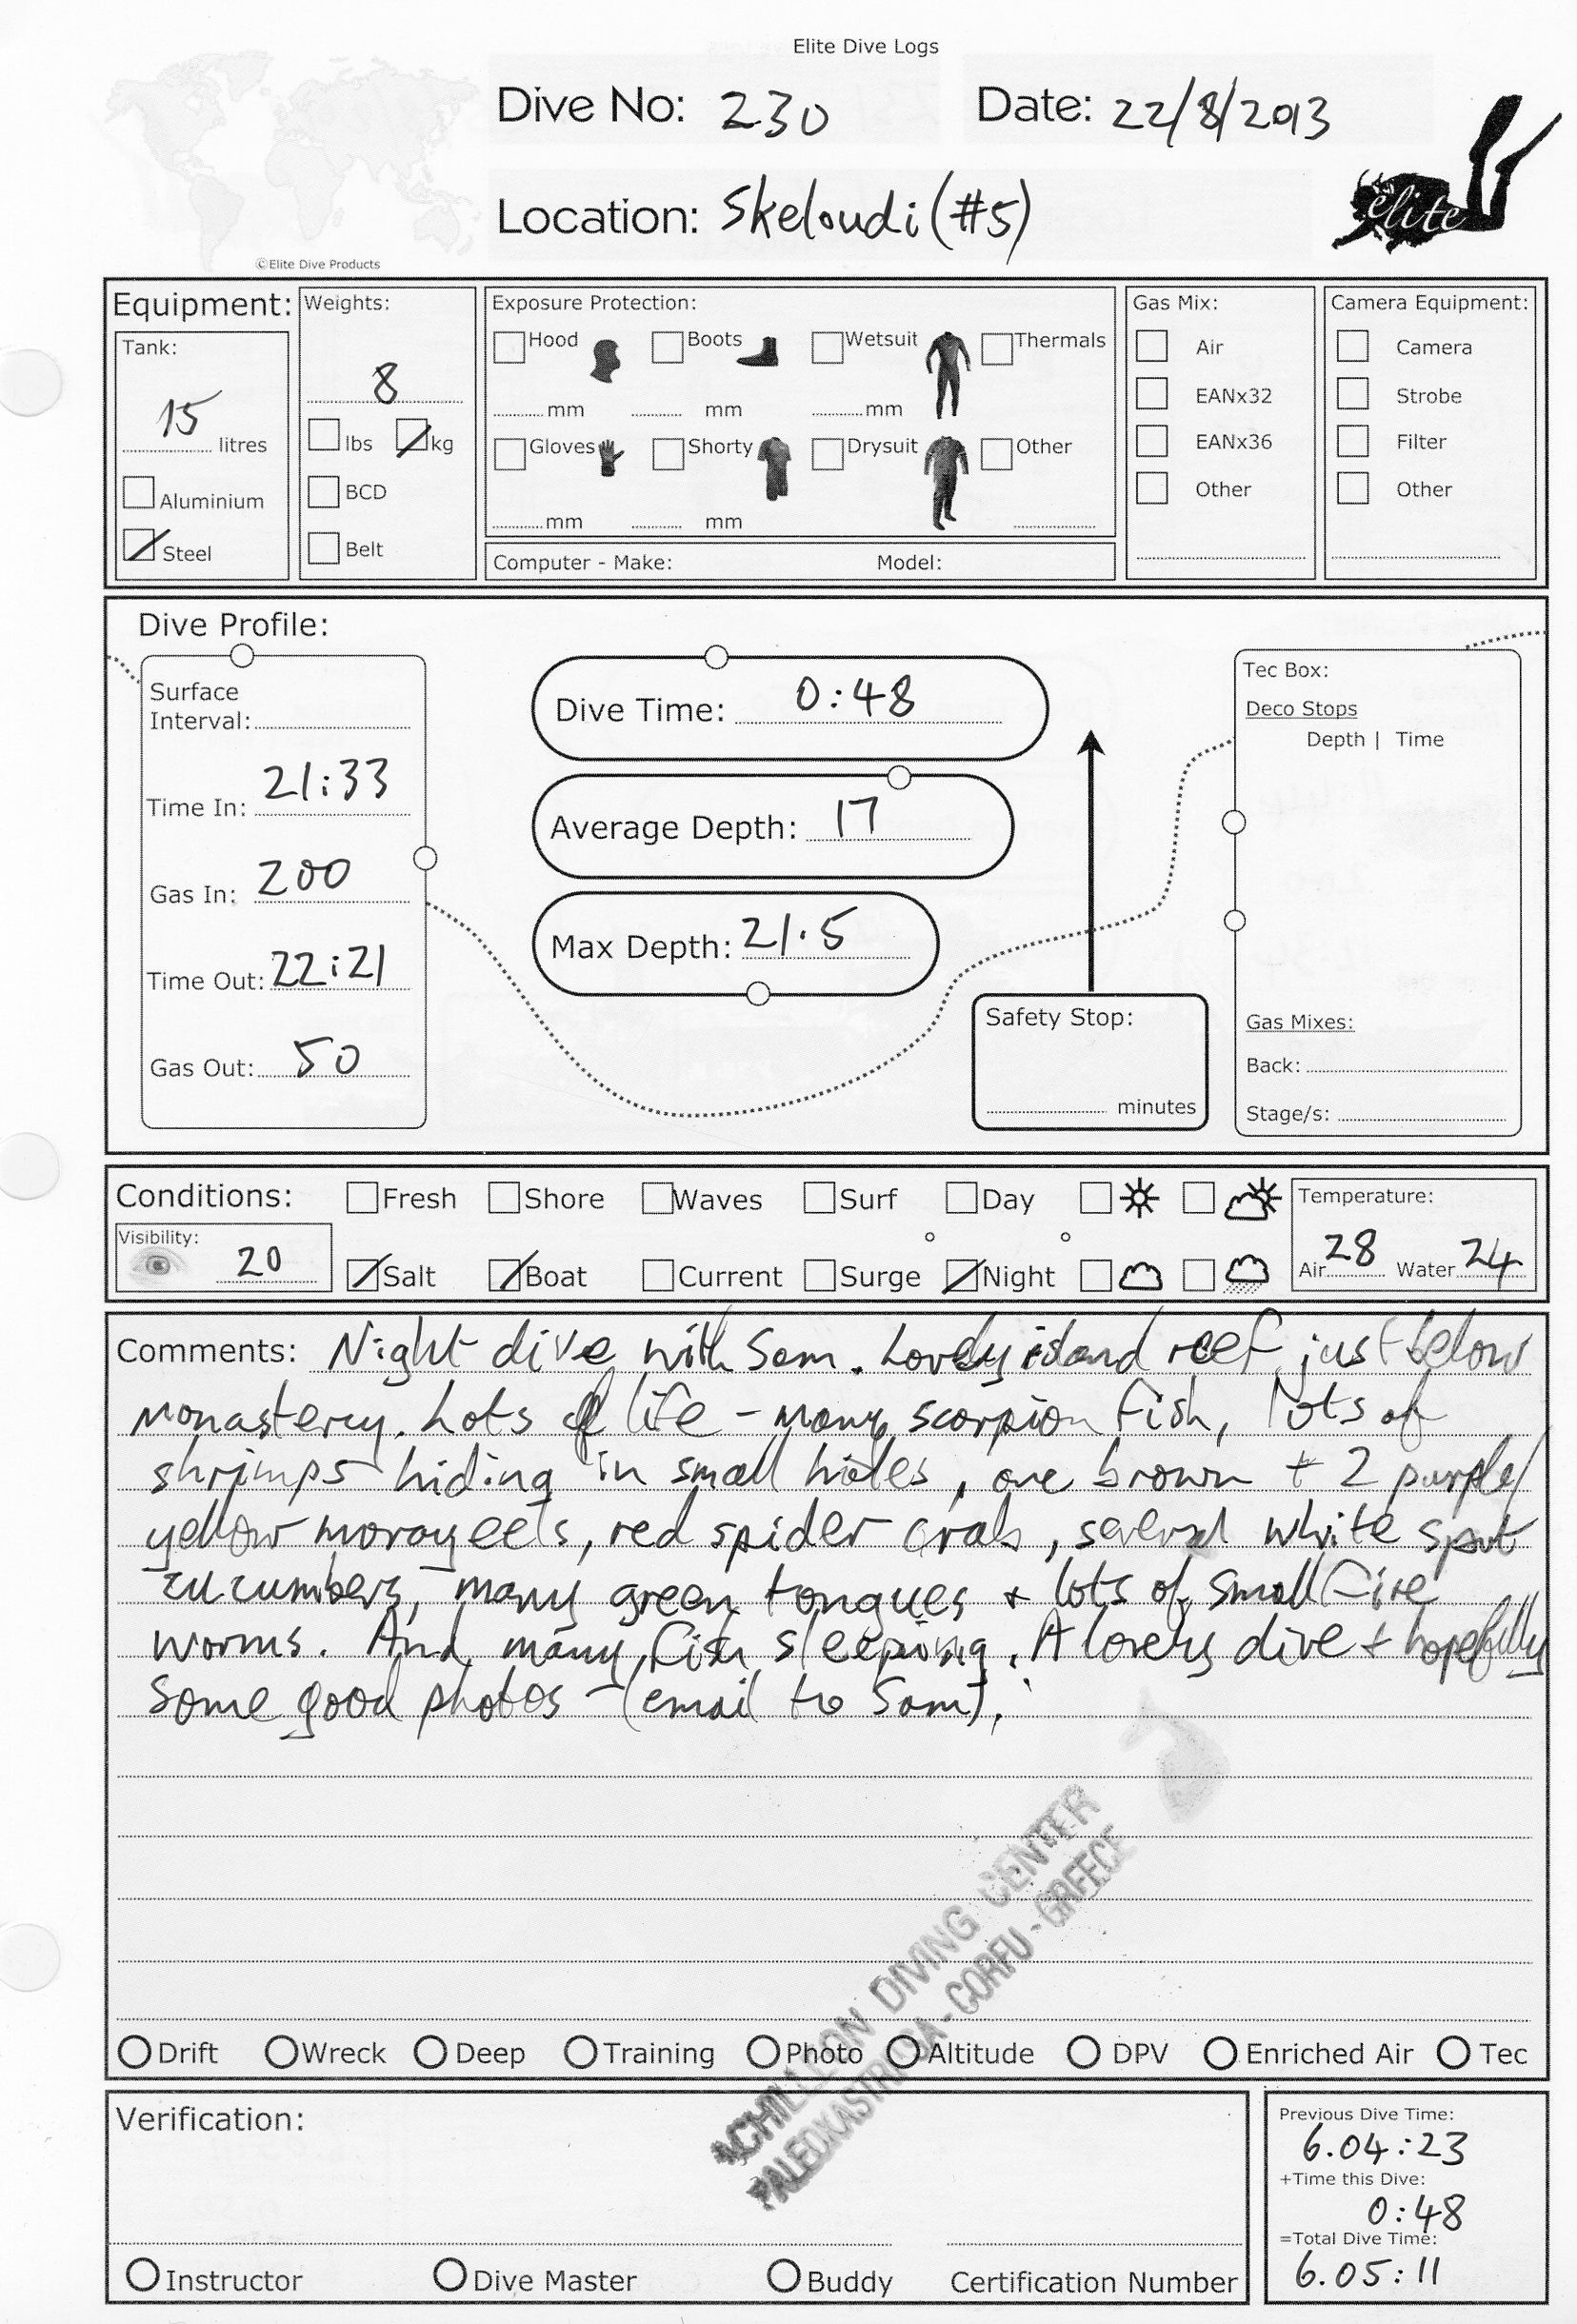 Elite Dive Logs
Dive No: 230 Date: 22/8/2013
Location: Skeloudi (#5)
elite
©Elite Dive Products
Equipment: Weights: Exposure Protection: Gas Mix: Camera Equipment:
Tank: Hood Boots Wetsuit Thermals Air Camera
8
15 litres
mm mm mm EANx32 Strobe
lbs kg Gloves Shorty Drysuit Other EANx36 Filter
Aluminium BCD Other Other
mm mm
Steel Belt
Computer - Make: Model:
Dive Profile:
Surface
Interval:
Time In: 21:33
Gas In: 200
Time Out: 22:21
Gas Out: 50
Dive Time: 0:48
Average Depth: 17
Max Depth: 21.5
Safety Stop:
minutes
Tec Box:
Deco Stops
Depth | Time
Gas Mixes:
Back:
Stage/s:
Conditions: Fresh Shore Waves Surf Day Temperature:
Visibility: 20 Salt Boat Current Surge Night Air 28 Water 24
Comments: Night dive with Sam. Lovely island reef just below
monastery. Lots of life - many scorpion fish, lots of
shrimps hiding in small holes, one brown + 2 purple/
yellow moray eels, red spider crab, several white spot
cucumbers, many green tongues + lots of small fire
worms. And many fish sleeping. A lovely dive + hopefully
some good photos - (email to Sam).
ACHILLION DIVING CENTER
PALEOKASTRITSA - CORFU - GREECE
Drift Wreck Deep Training Photo Altitude DPV Enriched Air Tec
Verification:
Instructor Dive Master Buddy Certification Number
Previous Dive Time:
6.04:23
+Time this Dive:
0:48
=Total Dive Time:
6.05:11